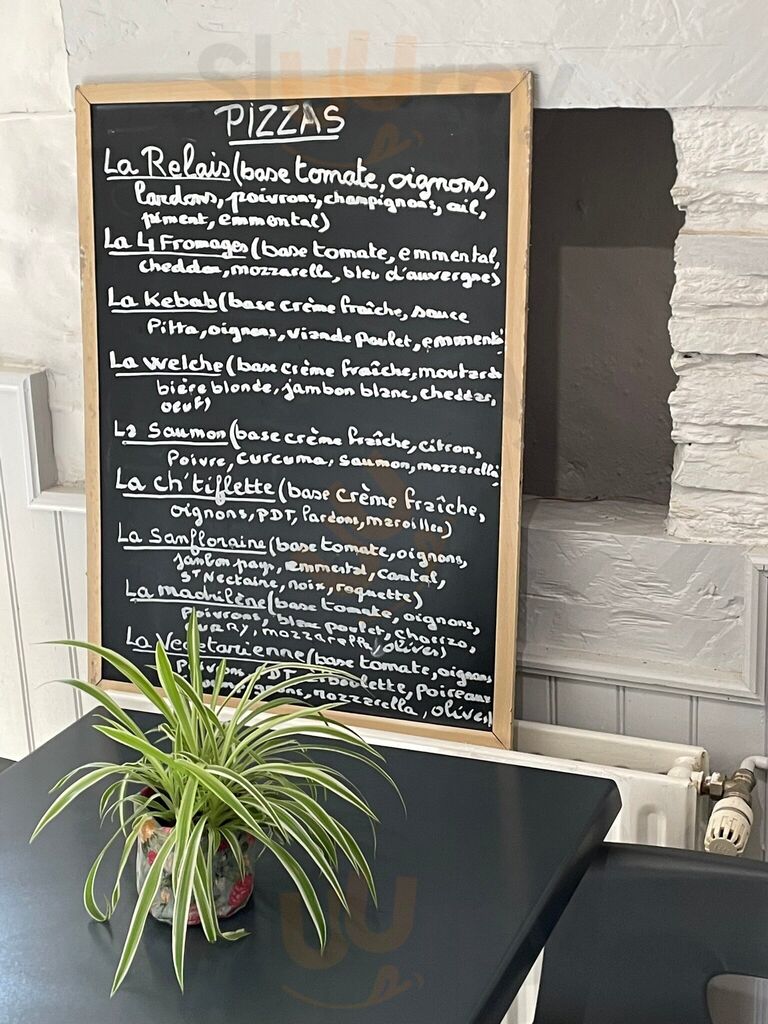 PIZZAS
La Relais (base tomate, oignons,
lardons, poivrons, champignons, ail,
piment, emmental)
La 4 Fromages (base tomate, emmental,
cheddar, mozzarella, bleu d'auvergne)
La Kebab (base crème fraîche, sauce
Pitta, oignons, viande poulet, emmental
La welche (base crème fraîche, moutarde
bière blonde, jambon blanc, cheddar,
oeuf)
La saumon (base crème fraîche, citron,
Poivre, curcuma, saumon, mozzarella
La ch'tiflette (base crème fraîche,
oignons, PDT, lardons, maroilles)
La Sanfloraine (base tomate, oignons,
jambon pays, emmental, Cantal,
ST Nectaire, noix, roquette)
La madrilène (base tomate, oignons,
Poivrons, blanc poulet, chorizo,
CURRY, mozzarella, olives)
La Vegetarienne (base tomate, oignons
poivrons, PDT, poireaux
mozzarella, olives)